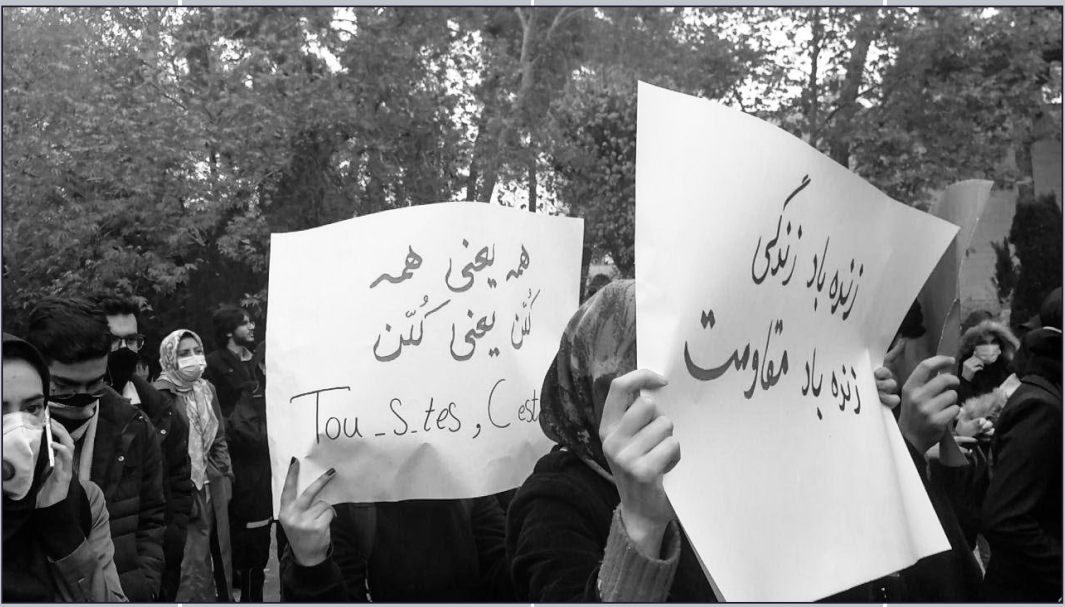 همه یعنی همه
کُلّن یعنی کُلّن
Tou_s_tes, C'est
زنده باد زندگی
زنده باد مقاومت